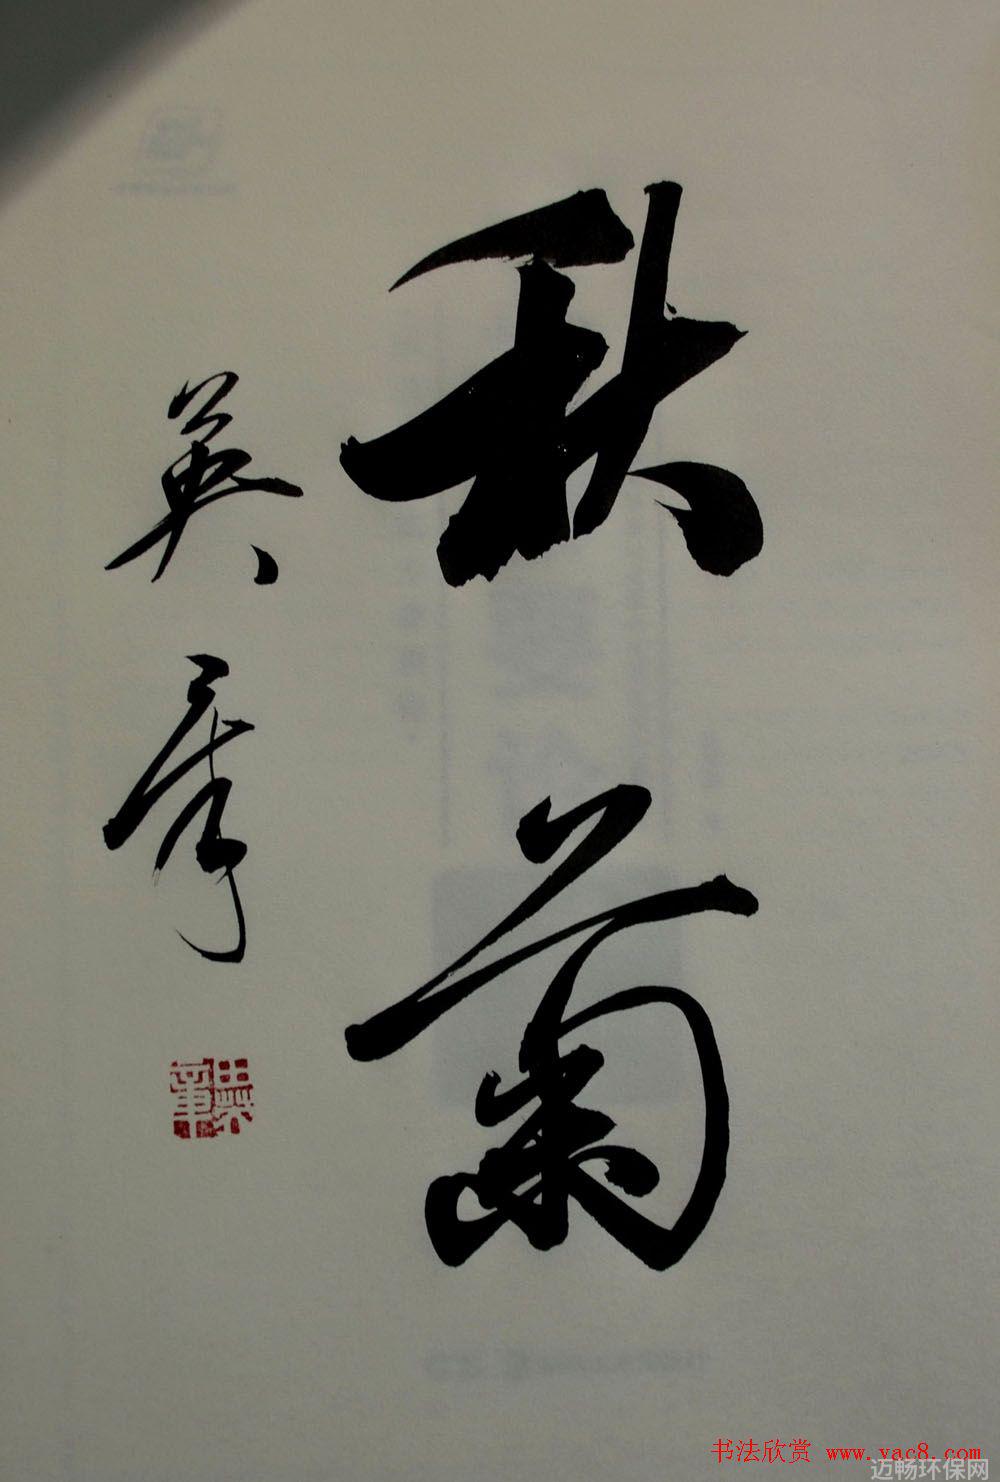 秋菊
英章
书法欣赏 www.yac8.com
迈畅环保网